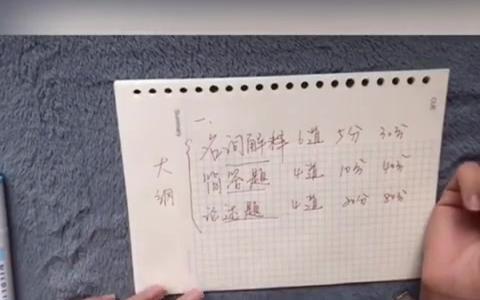 一、
名词解释 6道 5分 30分
简答题 4道 10分 40分
论述题 4道 20分 80分
大纲
Summary
CUE